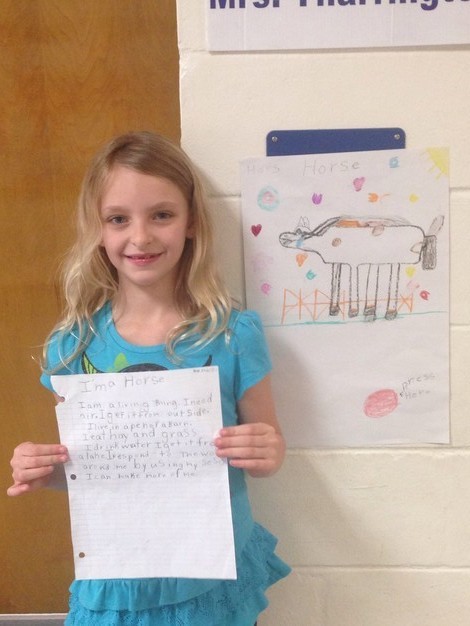 Mrs. Tharringto
Hors Horse
press
Here
I m a Horse
I am a living thing. I need
air. I get it from out side.
I live in a pen
I eat hay and grass.
I drink water I get it fro
a lake. I respond to the wo
around me by using my se
I can make more of me.